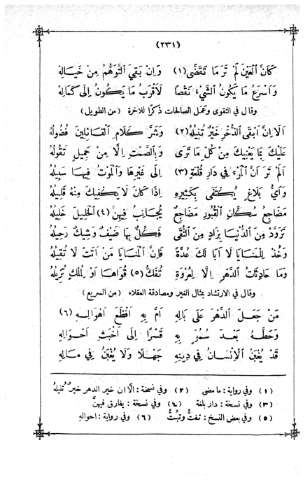 (٢٣١)
كَأَنَّ الْعَيْنَ لَمْ تَرَ مَا تَقَضَّى (١) وَإِنْ بَقِيَ التَّوَهُّمُ مِنْ خَيَالِهْ
وَأَسْرَعُ مَا يَكُونُ الشَّيْءُ نَقْصًا فَأَقْرَبُ مَا يَكُونُ إِلَى كَمَالِهْ
وقال في التقوى وعمل الصالحات ذكرًا للآخرة (من الطويل)
أَلَا إِنَّ أَبْقَى الذُّخْرِ خَيْرٌ تُنِيلُهُ (٢) وَشَرُّ كَلَامِ الْقَائِلِينَ فُضُولُهُ
عَلَيْكَ بِمَا يَعْنِيكَ مِنْ كُلِّ مَا تَرَى وَبِالصَّمْتِ إِلَّا مِنْ جَمِيلٍ تَقُولُهُ
أَلَمْ تَرَ أَنَّ الْمَرْءَ فِي دَارِ قُلْعَةٍ (٣) إِلَى غَيْرِهَا وَالْمَوْتُ فِيهَا سَبِيلُهُ
وَأَيُّ بَلَاغٍ يُكْتَفَى بِكَثِيرِهِ إِذَا كَانَ لَا يَكْفِيكَ مِنْهُ قَلِيلُهُ
مَضَاجِعُ سُكَّانِ الْقُبُورِ مَضَاجِعٌ يُجَانِبُ فِيهِنَّ (٤) الْخَلِيلَ خَلِيلُهُ
تَزَوَّدْ مِنَ الدُّنْيَا بِزَادٍ مِنَ التُّقَى فَكُلٌّ بِهَا ضَيْفٌ وَشِيكٌ رَحِيلُهُ
وَخُذْ لِلْمَنَايَا لَا أَبَا لَكَ عُدَّةً فَإِنَّ الْمَنَايَا مَنْ أَتَتْ لَا تُقِيلُهُ
وَمَا حَادِثَاتُ الدَّهْرِ إِلَّا لِعُرْوَةٍ تَفُكُّ (٥) قُوَاهَا أَوْ لِمُلْكٍ تُزِيلُهُ
وقال في الارتشاد بمثال الغير ومصادقة العقلاء (من السريع)
مَنْ جَعَلَ الدَّهْرَ عَلَى بَالِهِ أَمْ بِهِ أَفْظَعَ أَهْوَالِهِ (٦)
وَحَطَّهُ بَعْدَ سُمُوٍّ بِهِ قَسْرًا إِلَى أَخْبَثِ أَحْوَالِهِ
قَدْ يُغْبَنُ الْإِنْسَانُ فِي دِينِهِ جَهْلًا وَلَا يُغْبَنُ فِي مَالِهِ
(١) وفي رواية: ما مضى (٢) وفي نسخة: ألا إن خير الدهر خيرٌ تُنيلُهُ
(٣) وفي نسخة: دار بلغة (٤) وفي نسخة: يفارق فيهنّ
(٥) وفي بعض النسخ: تفتّ وتبتّ (٦) وفي رواية: أحواله